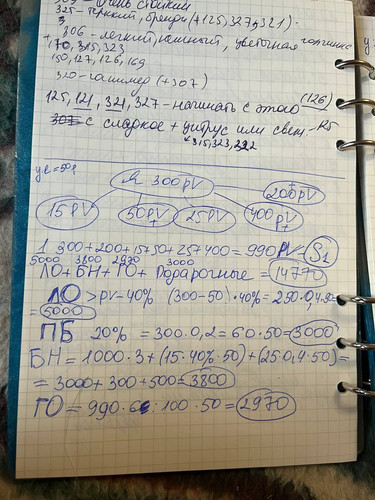 309 - очень стойкий
325 - терпкий, бренди (+125,327,321).
3
+ 306 - легкий, нежный, цветочная горчинка
170, 315, 323
150, 127, 126, 169
320 - гламмер (+307)
125, 121, 321, 327 - начинать с этого (126)
307 с сладкое + цитрус или свеж. - R5
315, 323, 322
у.е = 50р
Я 300 PV
200 PV
15 PV 50 PV 25 PV 400 PV
1. 300+200+15+50+25+400 = 990 PV S1
5000 3800 2970 3000
ЛО + БН + ГО + Подарочные = 14770
ЛО > PV - 40% (300-50)·40% = 250·0,4·50=
= 5000
ПБ 20% = 300·0,2 = 60·50 = 3000
БН = 1000·3 + (15·40%·50) + (25·0,4·50) =
= 3000 + 300 + 500 = 3800
ГО = 990·6 : 100·50 = 2970